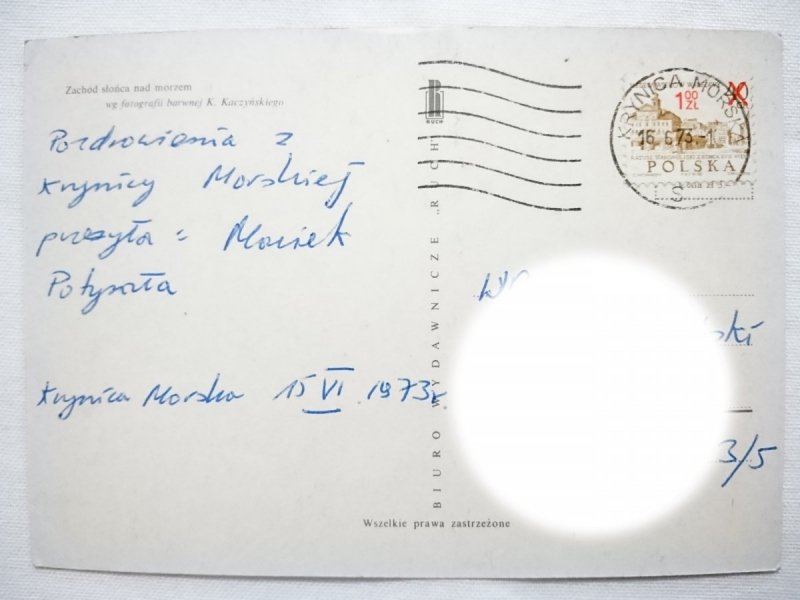 Zachód słońca nad morzem
wg fotografii barwnej K. Kaczyńskiego
Pozdrowienia z
Krynicy Morskiej
przesyła = Maciek
Potyrała
Krynica Morska 15 VI 1973r
RUCH
BIURO WYDAWNICZE „RUCH"
Wszelkie prawa zastrzeżone
1 00 ZŁ
POLSKA
KRYNICA MORSKA
16.6.73.-1
S
ski
3/5